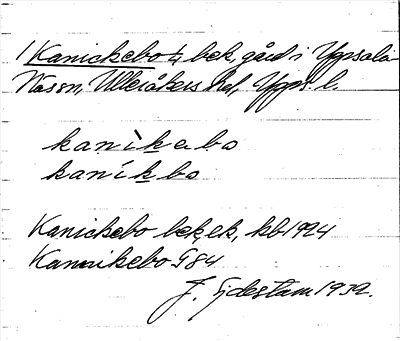 1 Kanickebo 4 bek, gård i Uppsala
Näs sn, Ulleråkers hd, Upps. l.
kanìkabo
kaníkbo
Kanickebo bek, ek, kb 1924
Kanikebo G 84
J. Sjdestam 1932.